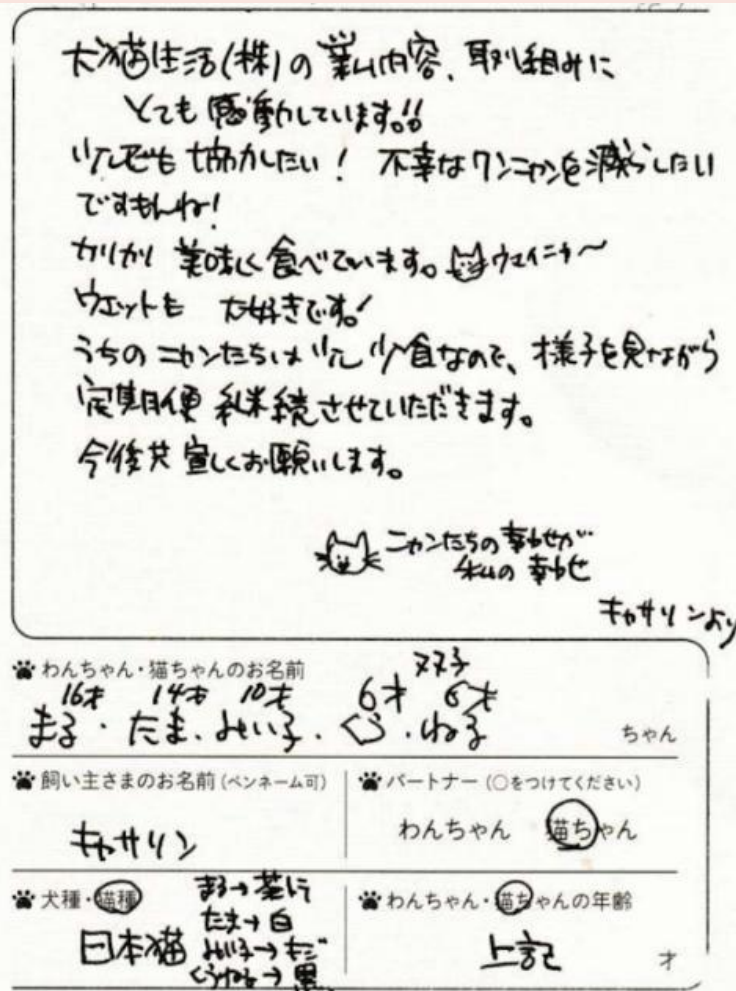 犬猫生活(株)の業ム内容、取り組みに
とても感動しています!!
少しでも協力したい! 不幸なワンニャンを減らしたい
ですもんね!
カリカリ 美味しく食べています。ウエイニャ〜
ウエットも 大好きです!
うちのニャンたちは少し少食なので、様子を見ながら
定期便 継続させていただきます。
今後共 宜しくお願いします。
ニャンたちの幸せが
私の幸せ
キャサリンより
わんちゃん・猫ちゃんのお名前
双子
16才 14才 10才 6才 6才
まる・たま・みい子・くう・ねる
ちゃん
飼い主さまのお名前(ペンネーム可)
キャサリン
パートナー(○をつけてください)
わんちゃん 猫ちゃん
犬種・猫種
日本猫
まる→茶トラ
たま→白
みい子→キジ
くうねる→黒
わんちゃん・猫ちゃんの年齢
上記
才